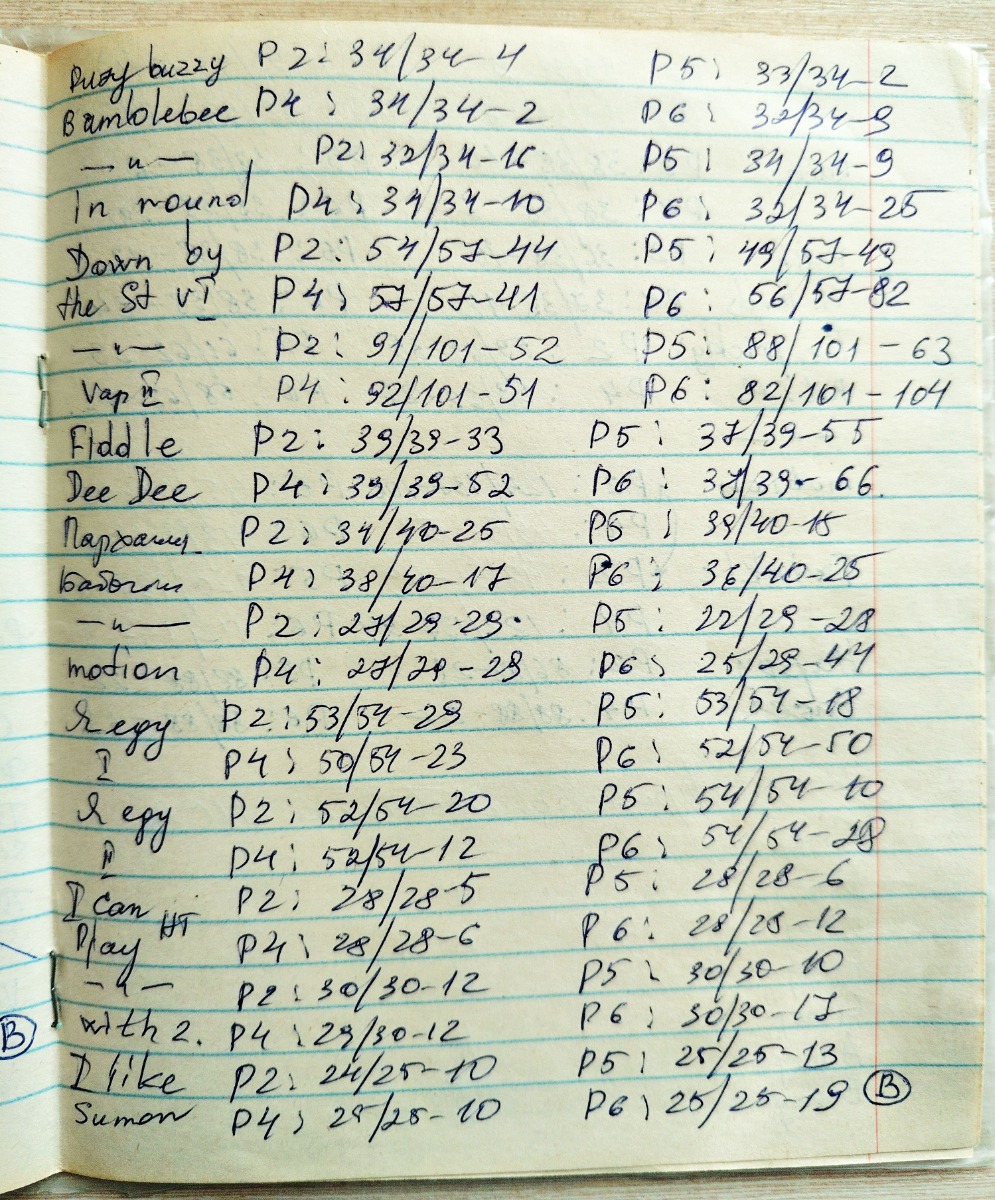 Buzy buzzy P2: 34/34-4 P5: 33/34-2
Bamblebee P4: 34/34-2 P6: 32/34-9
—"— P2: 32/34-16 P5: 34/34-9
In round P4: 34/34-10 P6: 32/34-25
Down by P2: 54/57-44 P5: 49/57-49
the St v I P4: 57/57-41 P6: 56/57-82
—"— P2: 91/101-52 P5: 88/101-63
Vap II P4: 92/101-51 P6: 82/101-104
Fiddle P2: 39/39-33 P5: 37/39-55
Dee Dee P4: 39/39-52 P6: 37/39-66.
P2: 34/40-25 P5: 39/40-15
Бабочки P4: 38/40-17 P6: 36/40-25
—"— P2: 27/29-29 P5: 22/29-28
motion P4: 27/29-29 P6: 25/29-44
Я еду P2: 53/54-29 P5: 53/54-18
I P4: 50/54-23 P6: 52/54-50
Я еду P2: 52/54-20 P5: 54/54-10
II P4: 52/54-12 P6: 54/54-28
I can P2: 28/28-5 P5: 28/28-6
Play HT P4: 28/28-6 P6: 28/28-12
—"— P2: 30/30-12 P5: 30/30-10
with 2. P4: 29/30-12 P6: 30/30-17
I like P2: 24/25-10 P5: 25/25-13
Sumon P4: 25/25-10 P6: 25/25-19 B
B